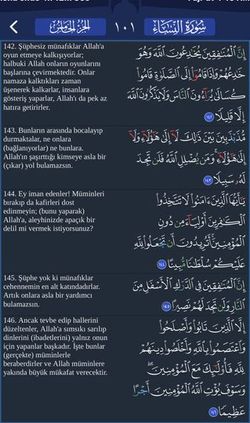 الجزء الخامس
١٠١
سورة النساء
142. Şüphesiz münafıklar Allah'a
oyun etmeye kalkışıyorlar;
halbuki Allah onların oyunlarını
başlarına çevirmektedir. Onlar
namaza kalktıkları zaman
üşenerek kalkarlar, insanlara
gösteriş yaparlar, Allah'ı da pek az
hatıra getirirler.
إِنَّ الْمُنَافِقِينَ يُخَادِعُونَ اللَّهَ وَهُوَ
خَادِعُهُمْ وَإِذَا قَامُوا إِلَى الصَّلَاةِ قَامُوا
كُسَالَىٰ يُرَاءُونَ النَّاسَ وَلَا يَذْكُرُونَ اللَّهَ
إِلَّا قَلِيلًا ١٤٢
143. Bunların arasında bocalayıp
durmaktalar, ne onlara
(bağlanıyorlar) ne bunlara.
Allah'ın şaşırttığı kimseye asla bir
(çıkar) yol bulamazsın.
مُذَبْذَبِينَ بَيْنَ ذَٰلِكَ لَا إِلَىٰ هَٰؤُلَاءِ وَلَا
إِلَىٰ هَٰؤُلَاءِ وَمَنْ يُضْلِلِ اللَّهُ فَلَنْ تَجِدَ
لَهُ سَبِيلًا ١٤٣
144. Ey iman edenler! Müminleri
bırakıp da kafirleri dost
edinmeyin; (bunu yaparak)
Allah'a, aleyhinizde apaçık bir
delil mi vermek istiyorsunuz?
يَا أَيُّهَا الَّذِينَ آمَنُوا لَا تَتَّخِذُوا
الْكَافِرِينَ أَوْلِيَاءَ مِنْ دُونِ
الْمُؤْمِنِينَ أَتُرِيدُونَ أَنْ تَجْعَلُوا لِلَّهِ
عَلَيْكُمْ سُلْطَانًا مُبِينًا ١٤٤
145. Şüphe yok ki münafıklar
cehennemin en alt katındadırlar.
Artık onlara asla bir yardımcı
bulamazsın.
إِنَّ الْمُنَافِقِينَ فِي الدَّرْكِ الْأَسْفَلِ مِنَ
النَّارِ وَلَنْ تَجِدَ لَهُمْ نَصِيرًا ١٤٥
146. Ancak tevbe edip hallerini
düzeltenler, Allah'a sımsıkı sarılıp
dinlerini (ibadetlerini) yalnız onun
için yapanlar başkadır. İşte bunlar
(gerçekte) müminlerle
beraberdirler ve Allah müminlere
yakında büyük mükafat verecektir.
إِلَّا الَّذِينَ تَابُوا وَأَصْلَحُوا
وَاعْتَصَمُوا بِاللَّهِ وَأَخْلَصُوا دِينَهُمْ
لِلَّهِ فَأُولَٰئِكَ مَعَ الْمُؤْمِنِينَ
وَسَوْفَ يُؤْتِ اللَّهُ الْمُؤْمِنِينَ أَجْرًا
عَظِيمًا ١٤٦